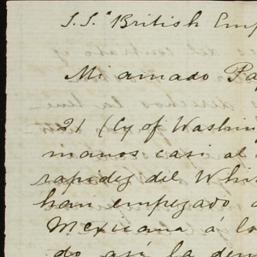 S.S. "British Emp
Mi amado Pa
21 (City of Washin
manos casi al
rapidez del Whi
han empezado a
Mexicana á lo
do así la dem